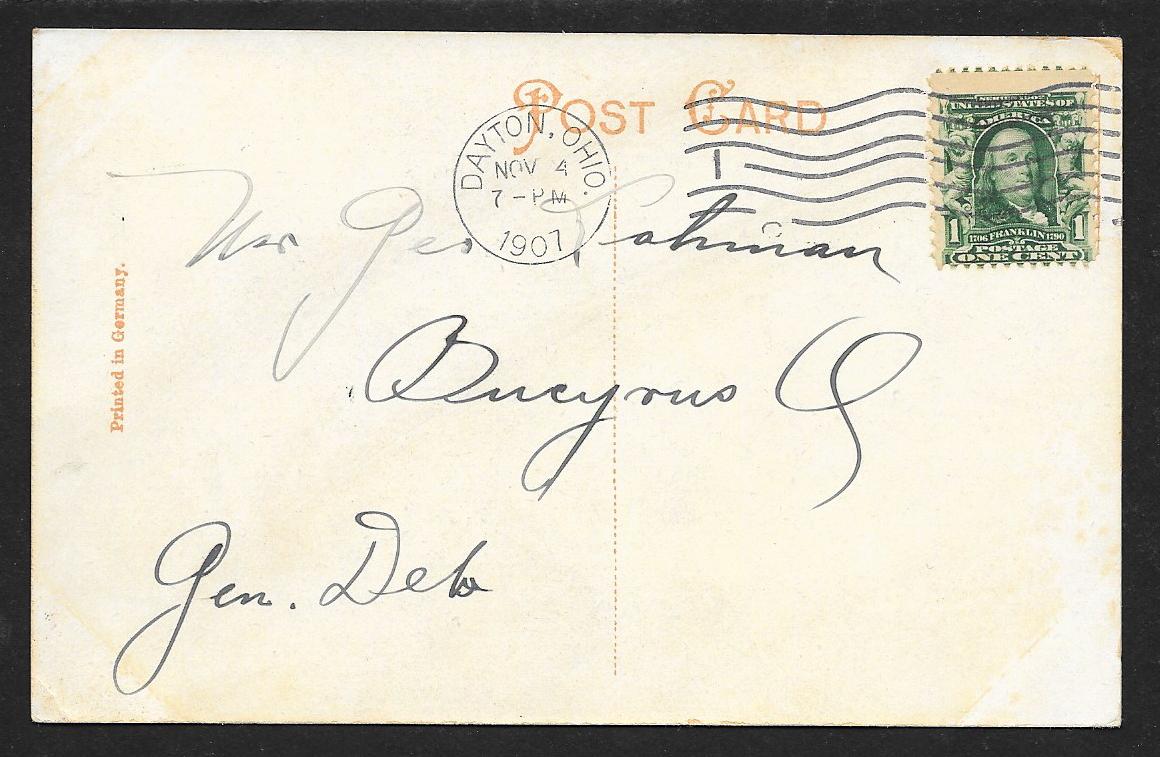 POST CARD
DAYTON, OHIO.
NOV 4
7-PM
1907
1
SERIES 1902
UNITED STATES OF
AMERICA
1 1706 FRANKLIN 1790 1
POSTAGE
ONE CENT
Mr Geo
Bucyrus O
Gen. Del
Printed in Germany.